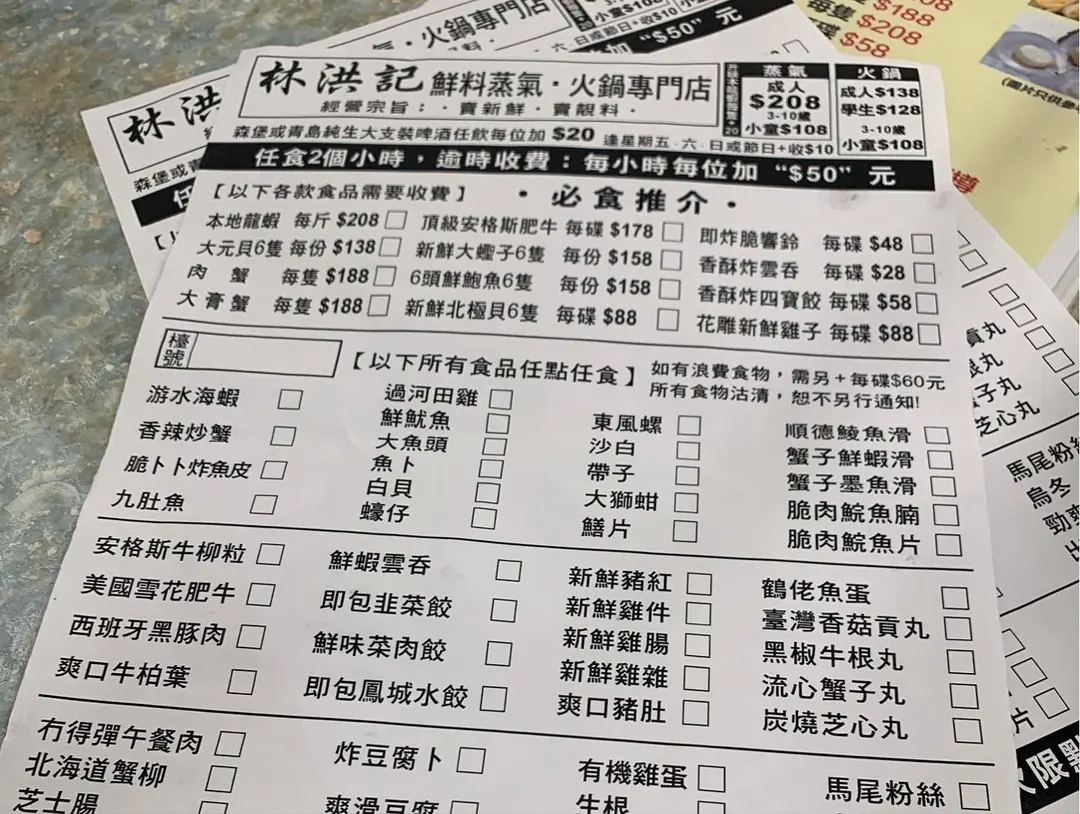 林洪記 鮮料蒸氣·火鍋專門店
經營宗旨：·賣新鮮·賣靚料·
蒸氣
成人
$208
3-10歲
小童$108
火鍋
成人$138
學生$128
3-10歲
小童$108
森堡或青島純生大支裝啤酒任飲每位加 $20 逢星期五·六·日或節日+收$10
任食2個小時，逾時收費：每小時每位加 “$50” 元
【以下各款食品需要收費】 ·必食推介·
本地龍蝦 每斤 $208 頂級安格斯肥牛 每碟 $178 即炸脆響鈴 每碟 $48
大元貝6隻 每份 $138 新鮮大蟶子6隻 每份 $158 香酥炸雲吞 每碟 $28
肉蟹 每隻 $188 6頭鮮鮑魚6隻 每份 $158 香酥炸四寶餃 每碟 $58
大膏蟹 每隻 $188 新鮮北極貝6隻 每碟 $88 花雕新鮮雞子 每碟 $88
檯號 【以下所有食品任點任食】 如有浪費食物，需另+每碟$60元
所有食物沽清，恕不另行通知!
游水海蝦
香辣炒蟹
脆卜卜炸魚皮
九肚魚
過河田雞
鮮魷魚
大魚頭
魚卜
白貝
蠔仔
東風螺
沙白
帶子
大獅蚶
鱔片
順德鯪魚滑
蟹子鮮蝦滑
蟹子墨魚滑
脆肉鯇魚腩
脆肉鯇魚片
安格斯牛柳粒
美國雪花肥牛
西班牙黑豚肉
爽口牛柏葉
鮮蝦雲吞
即包韭菜餃
鮮味菜肉餃
即包鳳城水餃
新鮮豬紅
新鮮雞件
新鮮雞腸
新鮮雞雜
爽口豬肚
鶴佬魚蛋
臺灣香菇貢丸
黑椒牛根丸
流心蟹子丸
炭燒芝心丸
冇得彈午餐肉
北海道蟹柳
芝士腸
炸豆腐卜
爽滑豆腐
有機雞蛋
生根
馬尾粉絲
林洪
森堡或青
火鍋專門店
小童$108
日或節日+收$10
“$50” 元
$188
每隻 $208
$58
貢丸
蟹子丸
芝心丸
馬尾粉絲
烏冬